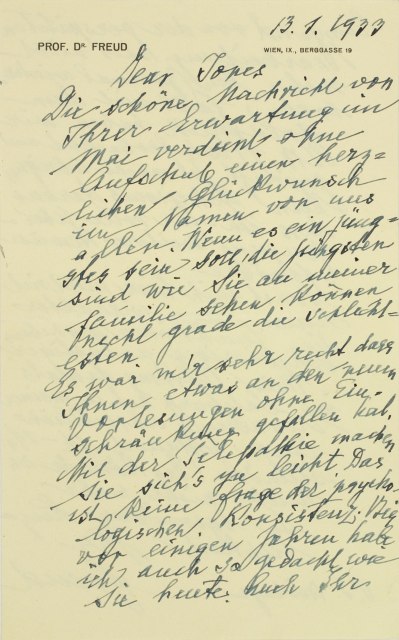 13. 1. 1933
PROF. DR. FREUD
WIEN, IX., BERGGASSE 19
Dear Jones
Die schöne Nachricht von
Ihrer Erwartung im
Mai verdient ohne
Aufschub einen herz=
lichen Glückwunsch
im Namen von uns
allen. Wenn es ein jüng=
stes sein soll, die Jüngsten
sind wie Sie an meiner
Familie sehen können
nicht grade die schlecht=
esten
Es war mir sehr recht dass
Ihnen etwas an den neuen
Vorlesungen ohne Ein=
schränkung gefallen hat.
Mit der Telepathie machen
Sie sich's zu leicht. Das
ist keine Frage der psycho
logischen Konsistenz. Bis
vor einigen Jahren habe
ich auch so gedacht wie
Sie heute. Auch Ihr